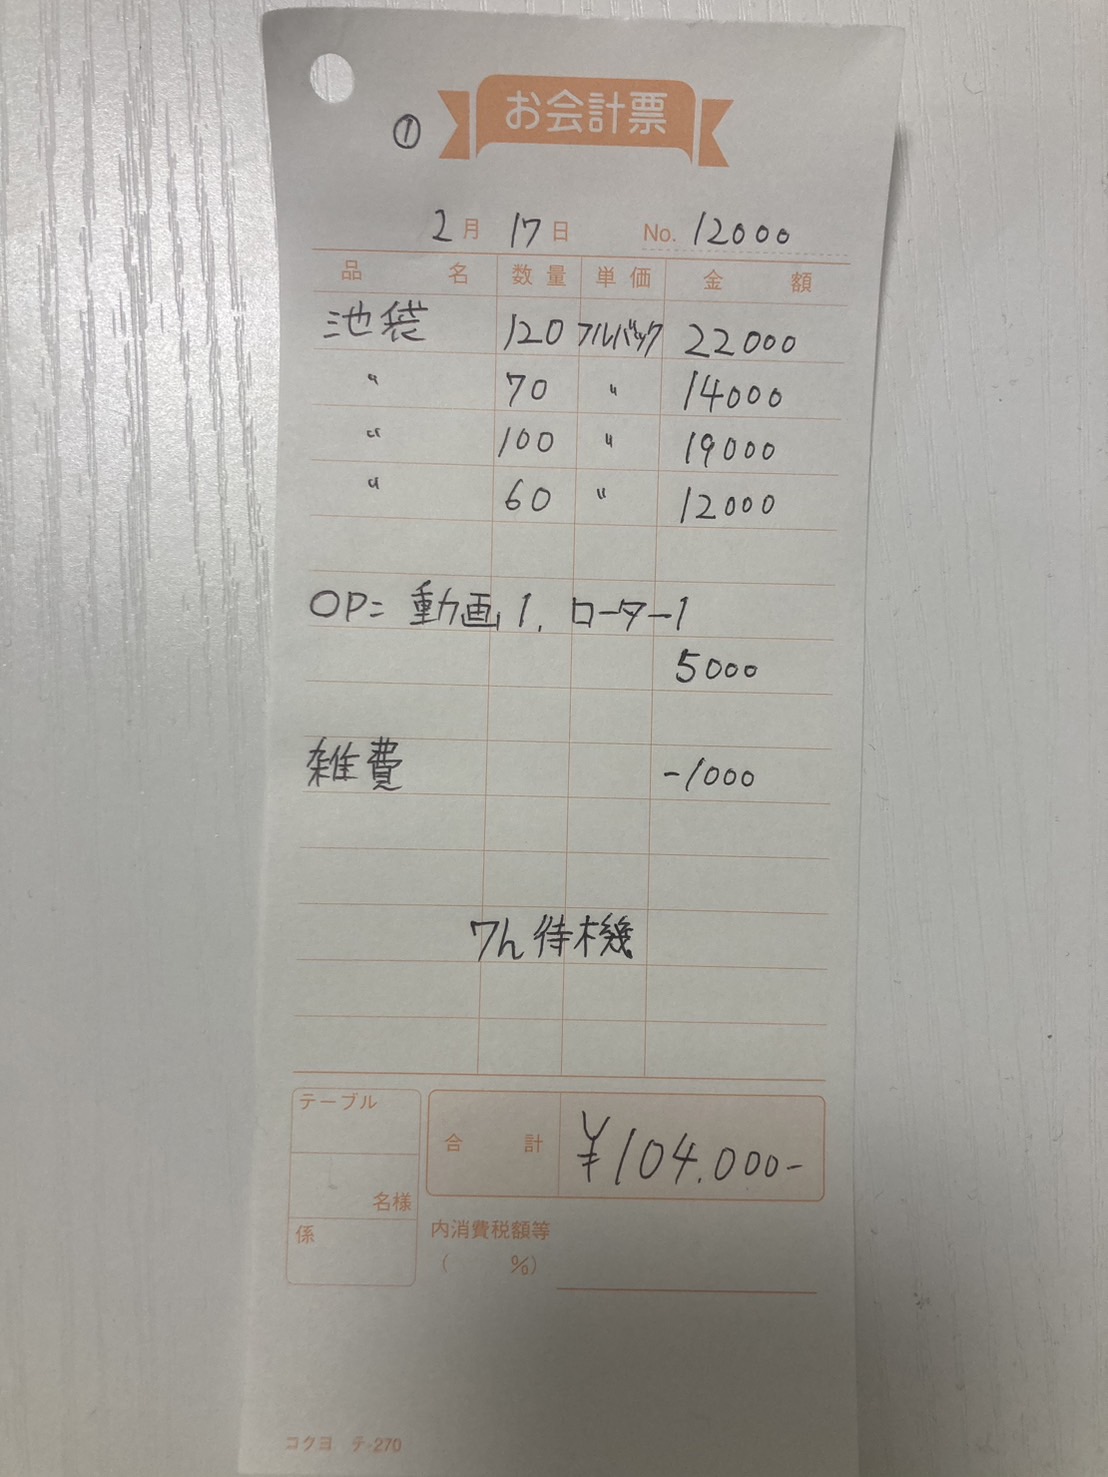 お会計票
①
2月 17日 No. 12000
品名 数量 単価 金額
池袋 120 フルバック 22000
〃 70 〃 14000
〃 100 〃 19000
〃 60 〃 12000
OP= 動画1. ローター1
5000
雑費 -1000
7h 待機
テーブル
合計 ¥104.000-
名様
係
内消費税額等
( %)
コクヨ テ-270